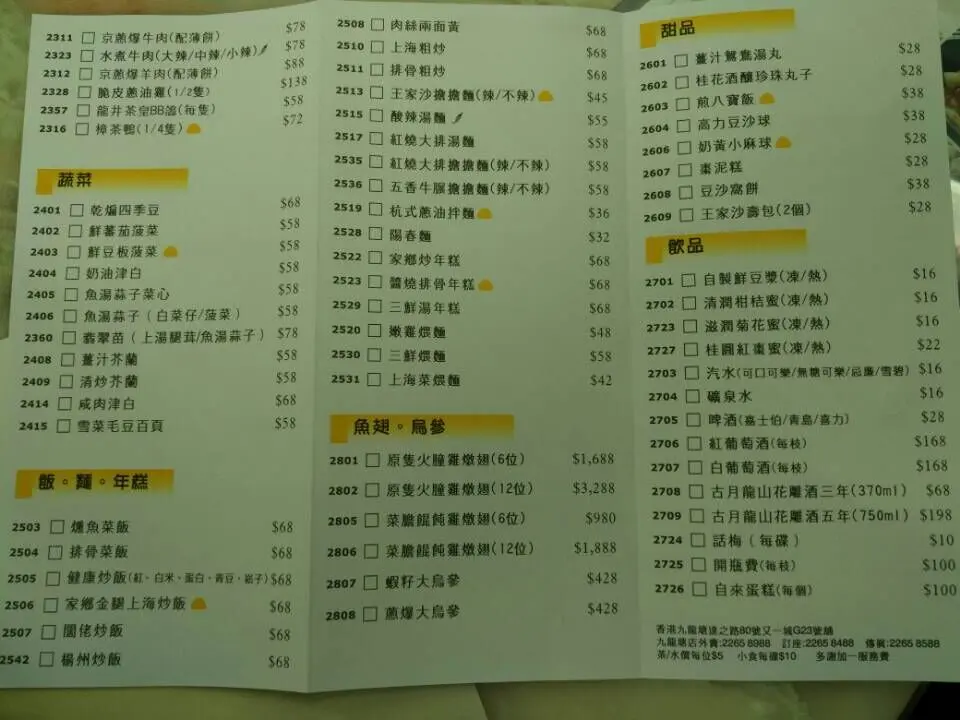 2311 京蔥爆牛肉(配薄餅) $78
2323 水煮牛肉(大辣/中辣/小辣) $78
2312 京蔥爆羊肉(配薄餅) $88
2328 脆皮蔥油雞(1/2隻) $138
2357 龍井茶皇BB鴿(每隻) $58
2316 樟茶鴨(1/4隻) $72
蔬菜
2401 乾煸四季豆 $68
2402 鮮蕃茄菠菜 $58
2403 鮮豆板菠菜 $58
2404 奶油津白 $58
2405 魚湯蒜子菜心 $58
2406 魚湯蒜子(白菜仔/菠菜) $58
2360 翡翠苗(上湯腿茸/魚湯蒜子) $78
2408 薑汁芥蘭 $58
2409 清炒芥蘭 $58
2414 咸肉津白 $68
2415 雪菜毛豆百頁 $58
飯。麵。年糕
2503 燻魚菜飯 $68
2504 排骨菜飯 $68
2505 健康炒飯(紅、白米、蛋白、青豆、崧子) $68
2506 家鄉金腿上海炒飯 $68
2507 闊佬炒飯 $68
2542 楊州炒飯 $68
2508 肉絲兩面黃 $68
2510 上海粗炒 $68
2511 排骨粗炒 $68
2513 王家沙擔擔麵(辣/不辣) $45
2515 酸辣湯麵 $55
2517 紅燒大排湯麵 $58
2535 紅燒大排擔擔麵(辣/不辣) $58
2536 五香牛腿擔擔麵(辣/不辣) $58
2519 杭式蔥油拌麵 $36
2528 陽春麵 $32
2522 家鄉炒年糕 $68
2523 醬燒排骨年糕 $68
2529 三鮮湯年糕 $68
2520 嫩雞煨麵 $48
2530 三鮮煨麵 $58
2531 上海菜煨麵 $42
魚翅。烏參
2801 原隻火朣雞燉翅(6位) $1,688
2802 原隻火朣雞燉翅(12位) $3,288
2805 菜膽餛飩雞燉翅(6位) $980
2806 菜膽餛飩雞燉翅(12位) $1,888
2807 蝦籽大烏參 $428
2808 蔥爆大烏參 $428
甜品
2601 薑汁鴛鴦湯丸 $28
2602 桂花酒釀珍珠丸子 $28
2603 煎八寶飯 $38
2604 高力豆沙球 $38
2606 奶黃小麻球 $28
2607 棗泥糕 $28
2608 豆沙窩餅 $38
2609 王家沙壽包(2個) $28
飲品
2701 自製鮮豆漿(凍/熱) $16
2702 清潤柑桔蜜(凍/熱) $16
2723 滋潤菊花蜜(凍/熱) $16
2727 桂圓紅棗蜜(凍/熱) $22
2703 汽水(可口可樂/無糖可樂/忌廉/雪碧) $16
2704 礦泉水 $16
2705 啤酒(嘉士伯/青島/喜力) $28
2706 紅葡萄酒(每枝) $168
2707 白葡萄酒(每枝) $168
2708 古月龍山花雕酒三年(370ml) $68
2709 古月龍山花雕酒五年(750ml) $198
2724 話梅(每碟) $10
2725 開瓶費(每枝) $100
2726 自來蛋糕(每個) $100
香港九龍塘達之路80號又一城G23號舖
九龍塘店外賣:2265 8988 訂座:2265 8488 傳真:2265 8588
茶/水價每位$5 小食每碟$10 多謝加一服務費